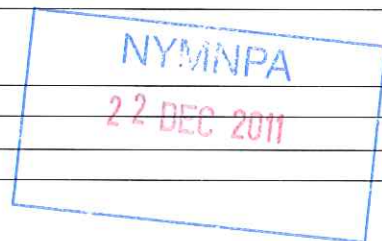 NYMNPA
22 DEC 2011